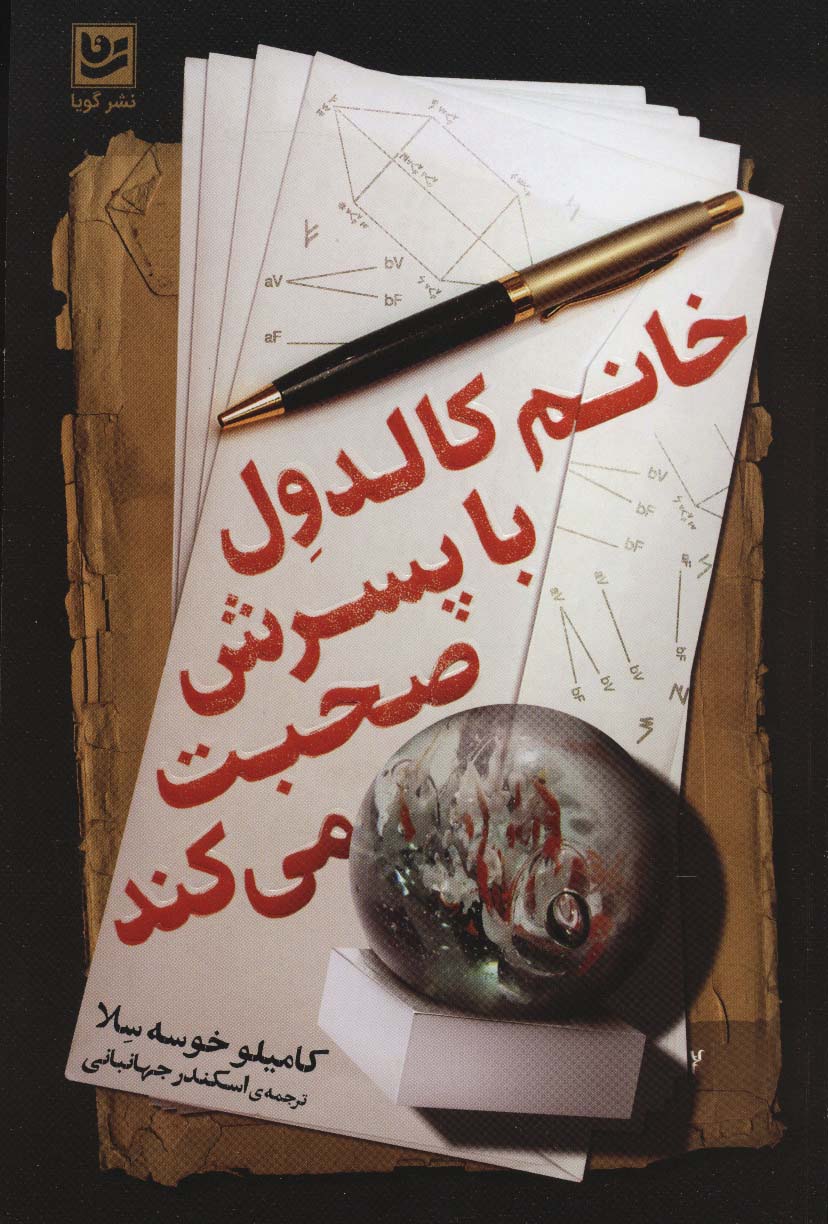 نشر گویا
aV
bV
bF
aF
خانم کالدوِل
با پسرش
صحبت
می‌کند
bV
bF
bF
aF
bF
aV
bV
aV
bV
bF
کامیلو خوسه سِلا
ترجمه‌ی اسکندر جهانبانی